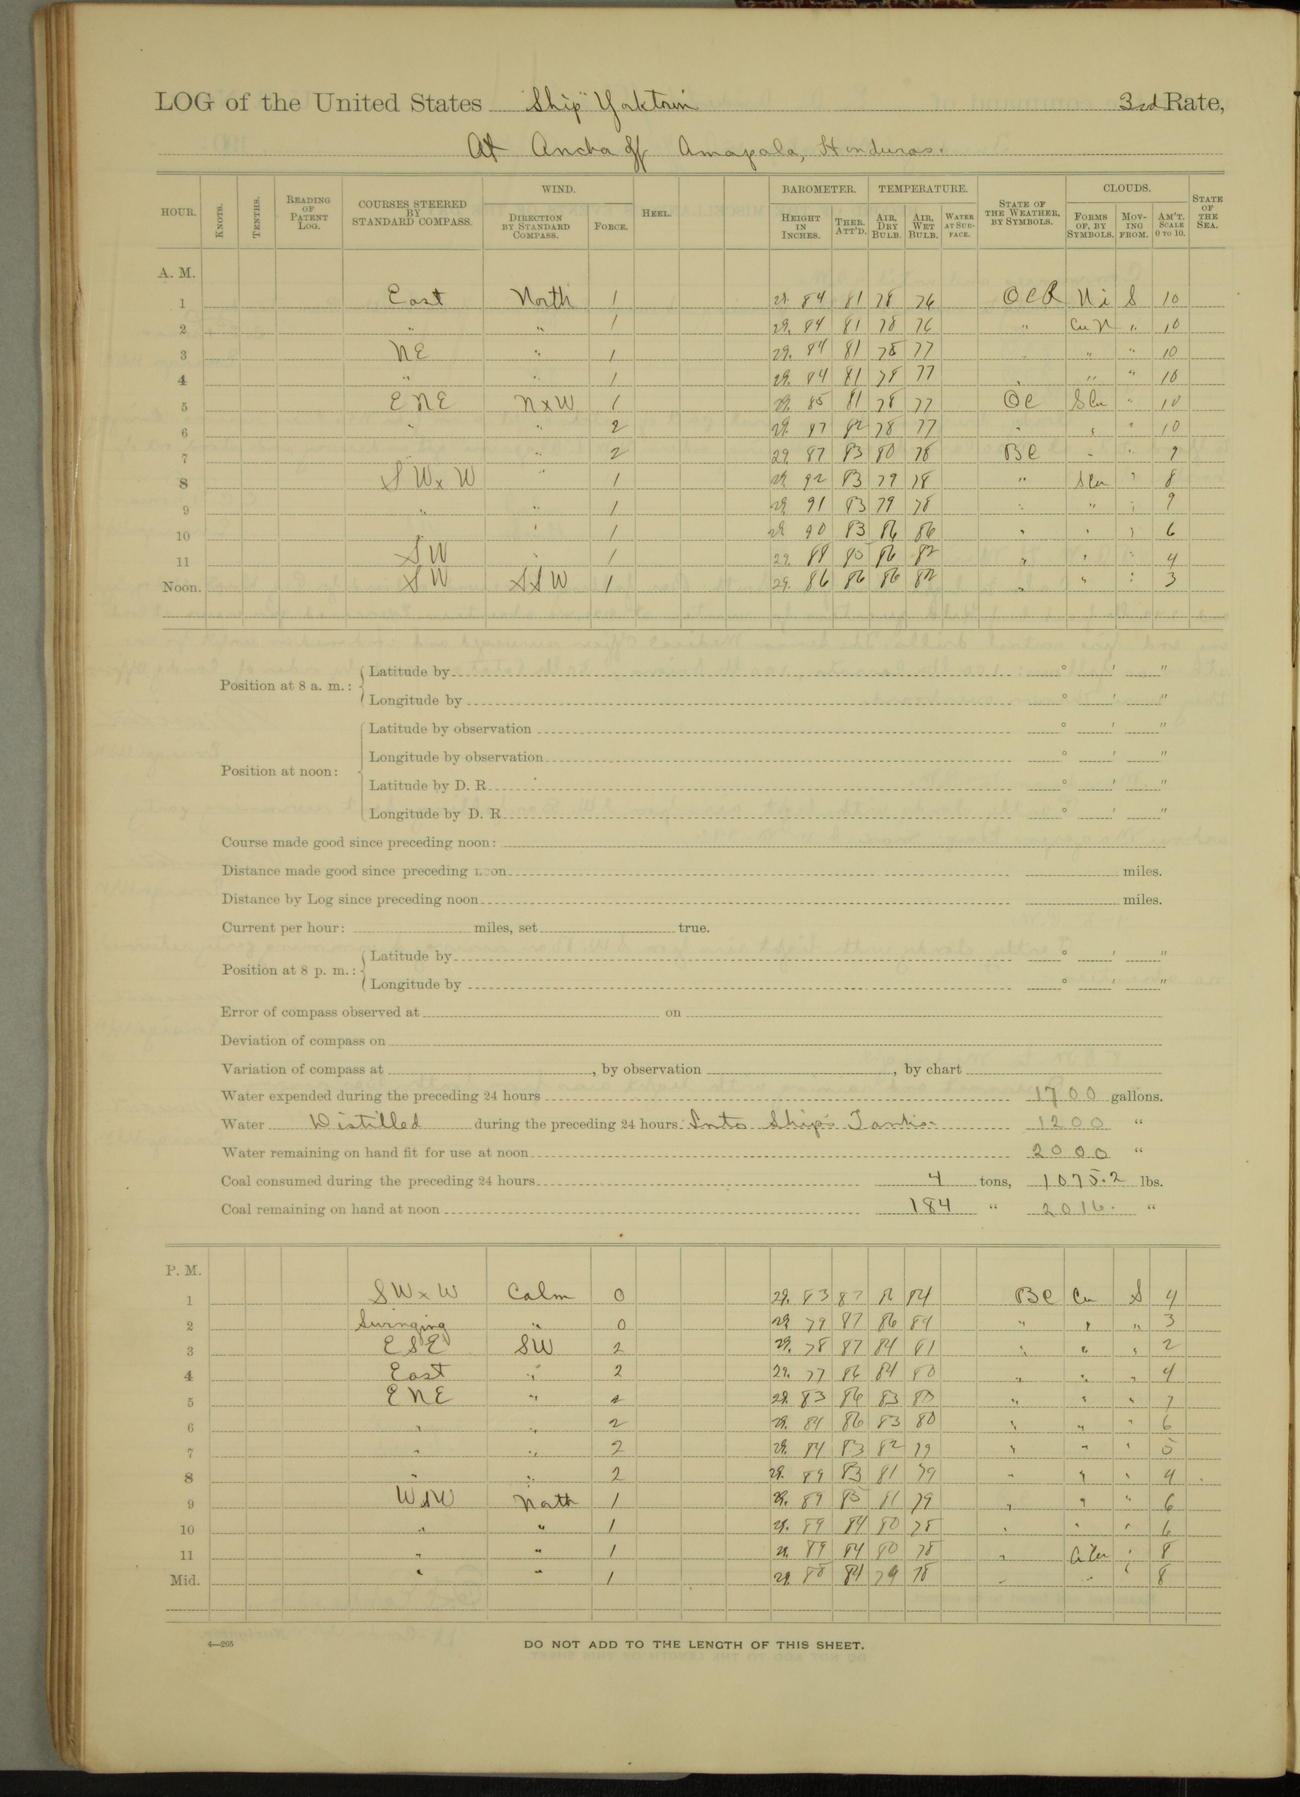 LOG of the United States Ship Yorktown 3rd Rate,
At Anchor off Amapala, Honduras.
HOUR. KNOTS. TENTHS. READING OF PATENT LOG. COURSES STEERED BY STANDARD COMPASS. WIND. DIRECTION BY STANDARD COMPASS. FORCE. HEEL. BAROMETER. HEIGHT IN INCHES. THER. ATT'D. TEMPERATURE. AIR, DRY BULB. AIR, WET BULB. WATER AT SURFACE. STATE OF THE WEATHER, BY SYMBOLS. CLOUDS. FORMS OF, BY SYMBOLS. MOVING FROM. AM'T. SCALE 0 TO 10. STATE OF THE SEA.
A. M.
1 East North 1 29. 84 81 78 76 OCR Ni S 10
2 " " 1 29. 84 81 78 76 " Cu N " 10
3 NE " 1 29. 84 81 78 77 " " " 10
4 " " 1 29. 84 81 78 77 " " " 10
5 ENE NxW 1 29. 85 81 78 77 OC SCu " 10
6 " " 2 29. 87 82 78 77 " " " 10
7 " " 2 29. 87 83 80 78 BC " " 9
8 SWxW " 1 29. 92 83 79 78 " SCu " 8
9 " " 1 29. 91 83 79 78 " " " 9
10 " " 1 29. 90 83 86 86 " " " 6
11 SW " 1 29. 88 85 86 82 " " " 4
Noon. SW SSW 1 29. 86 86 86 82 " " " 3
Position at 8 a. m.: Latitude by ° ' "
Longitude by ° ' "
Position at noon: Latitude by observation ° ' "
Longitude by observation ° ' "
Latitude by D. R. ° ' "
Longitude by D. R. ° ' "
Course made good since preceding noon:
Distance made good since preceding noon miles.
Distance by Log since preceding noon miles.
Current per hour: miles, set true.
Position at 8 p. m.: Latitude by ° ' "
Longitude by ° ' "
Error of compass observed at on
Deviation of compass on
Variation of compass at , by observation , by chart
Water expended during the preceding 24 hours 1700 gallons.
Water Distilled during the preceding 24 hours. Into Ship's Tanks. 1200 "
Water remaining on hand fit for use at noon 2000 "
Coal consumed during the preceding 24 hours 4 tons, 1075.2 lbs.
Coal remaining on hand at noon 184 " 2016. "
P. M.
1 SWxW Calm 0 29. 83 87 86 84 BC Cu S 4
2 Swinging " 0 29. 79 87 86 84 " " " 3
3 ESE SW 2 29. 78 87 84 81 " " " 2
4 East " 2 29. 77 86 84 80 " " " 4
5 ENE " 2 29. 83 86 83 80 " " " 7
6 " " 2 29. 84 86 83 80 " " " 6
7 " " 2 29. 84 83 82 79 " " " 5
8 " " 2 29. 89 83 81 79 " " " 4
9 WSW North 1 29. 89 85 81 79 " " " 6
10 " " 1 29. 89 84 80 78 " " " 6
11 " " 1 29. 89 84 80 78 " " 8
Mid. " " 1 29. 88 84 79 78 " " " 8
4—265
DO NOT ADD TO THE LENGTH OF THIS SHEET.